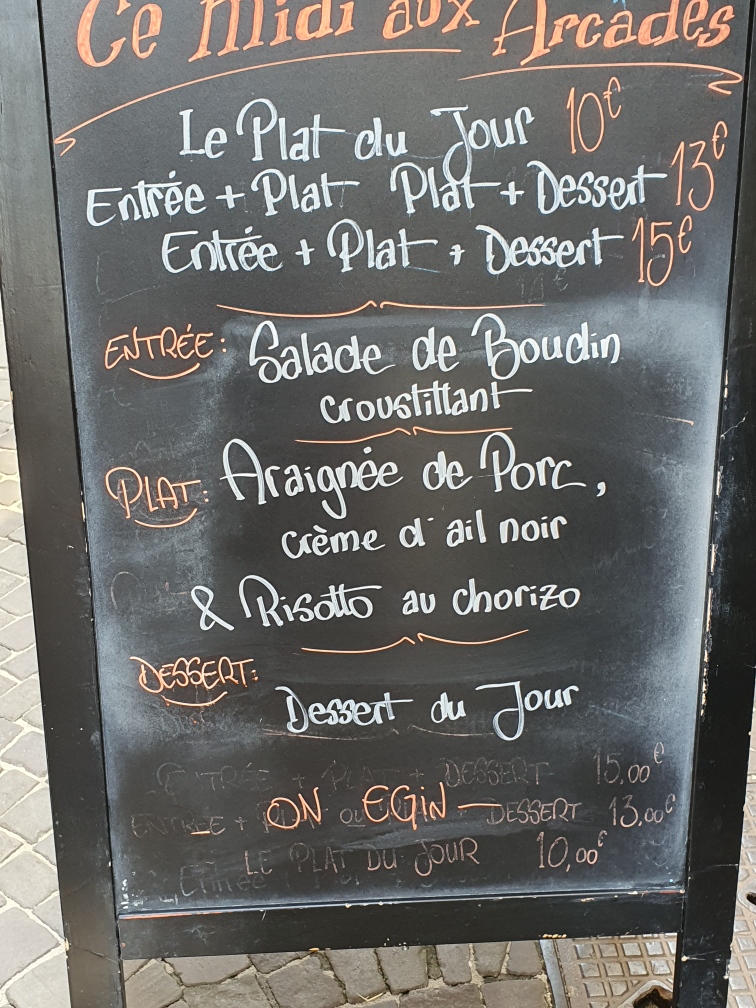 Ce Midi aux Arcades
Le Plat du Jour 10€
Entrée + Plat Plat + Dessert 13€
Entrée + Plat + Dessert 15€
ENTRÉE: Salade de Boudin
croustillant
PLAT: Araignée de Porc,
crème d'ail noir
& Risotto au chorizo
DESSERT:
Dessert du Jour
ENTRÉE + PLAT + DESSERT 15,00€
ENTREE + PLAT OU DESSERT 13,00€
ON EGIN
LE PLAT DU JOUR 10,00€
Entrée